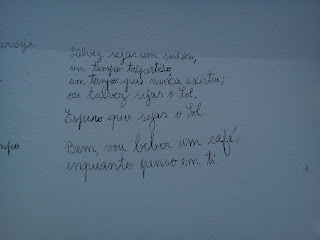 Talvez sejas um sudário,
um tempo
um tempo que nunca existiu;
ou talvez sejas o Sol,
Espero que sejas o Sol
Bem, vou beber um café,
enquanto penso em ti